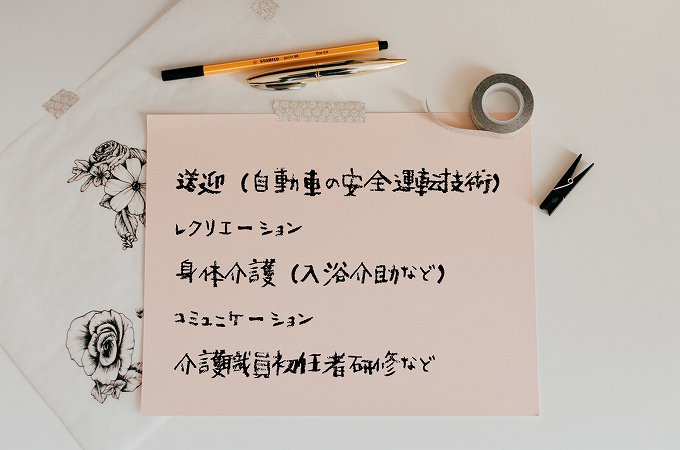 送迎（自動車の安全運転技術）
レクリエーション
身体介護（入浴介助など）
コミュニケーション
介護職員初任者研修など